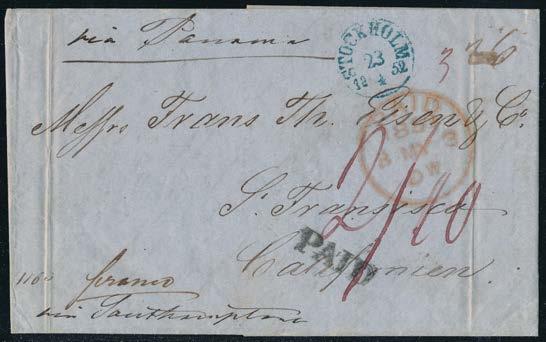 via Panama
STOCKHOLM
23
18 4 52
Messrs Frans Th. Eisen & Co.
PAID
8 MY
2/10
St Fransisco
PAID
Californien.
1160 franco
via Southampton